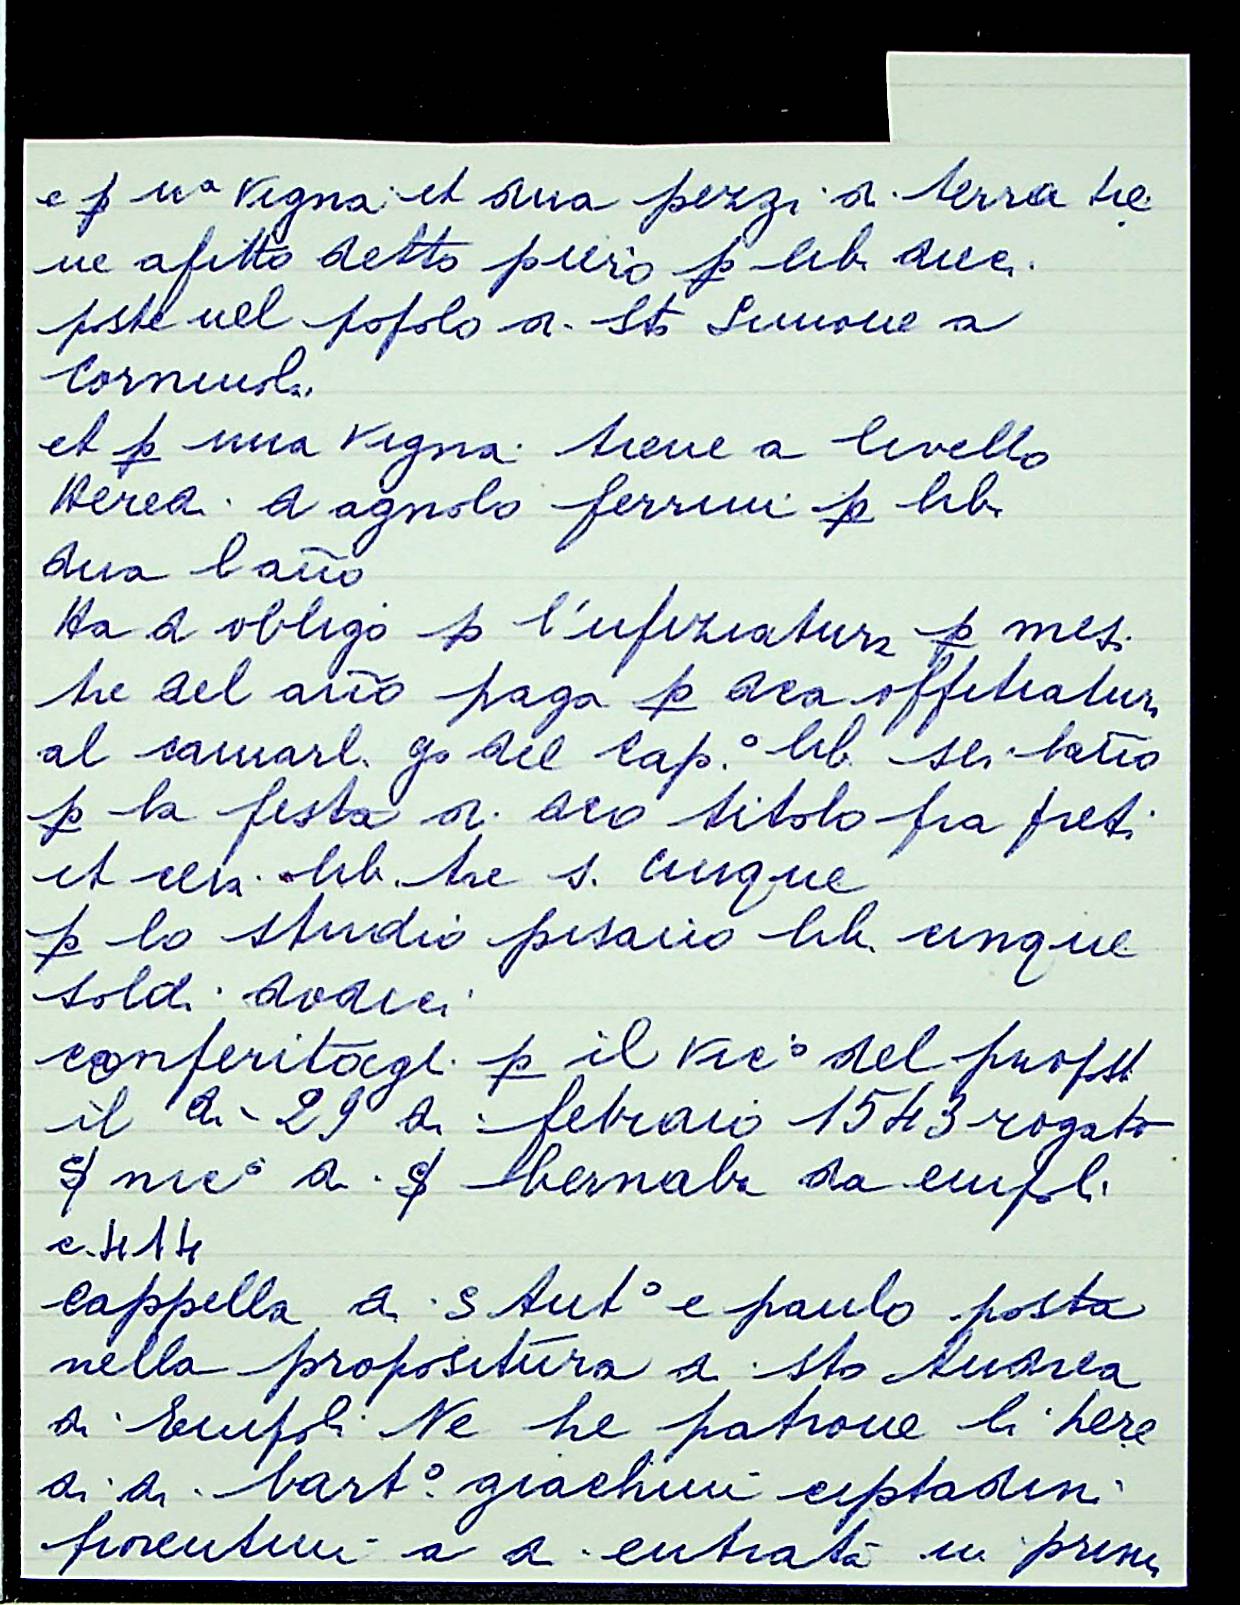 e p̱ uᵃ vigna et dua pezzi di terra tie
ne afitto detto piero p̱ lib. dieci
poste nel popolo di Sto Simone a
Corniola
et p̱ una vigna tiene a livello
Heredi di agnolo ferrini p̱ lib.
dua l año
Ha d obligo p̱ l'ufiziatura p̱ mesi
tre del año paga p̱ dca offitiatura
al camarl.go del Cap.º lib. sei laño
p̱ la festa di dco titolo fra preti
et cera lib. tre s. cinque
p̱ lo studio pisano lib. cinque
soldi dodici
conferitagli p̱ il vicº del propst
il di 29 di febraio 1543 rogato
ẜ nicº di ẜ bernaba da empoli
c. 414
Cappella di S Antº e paulo posta
nella propositura di sto Andrea
di Empoli Ne he patrone li here
di di bartº giachini ciptadini
fiorentini a d entrata in prim